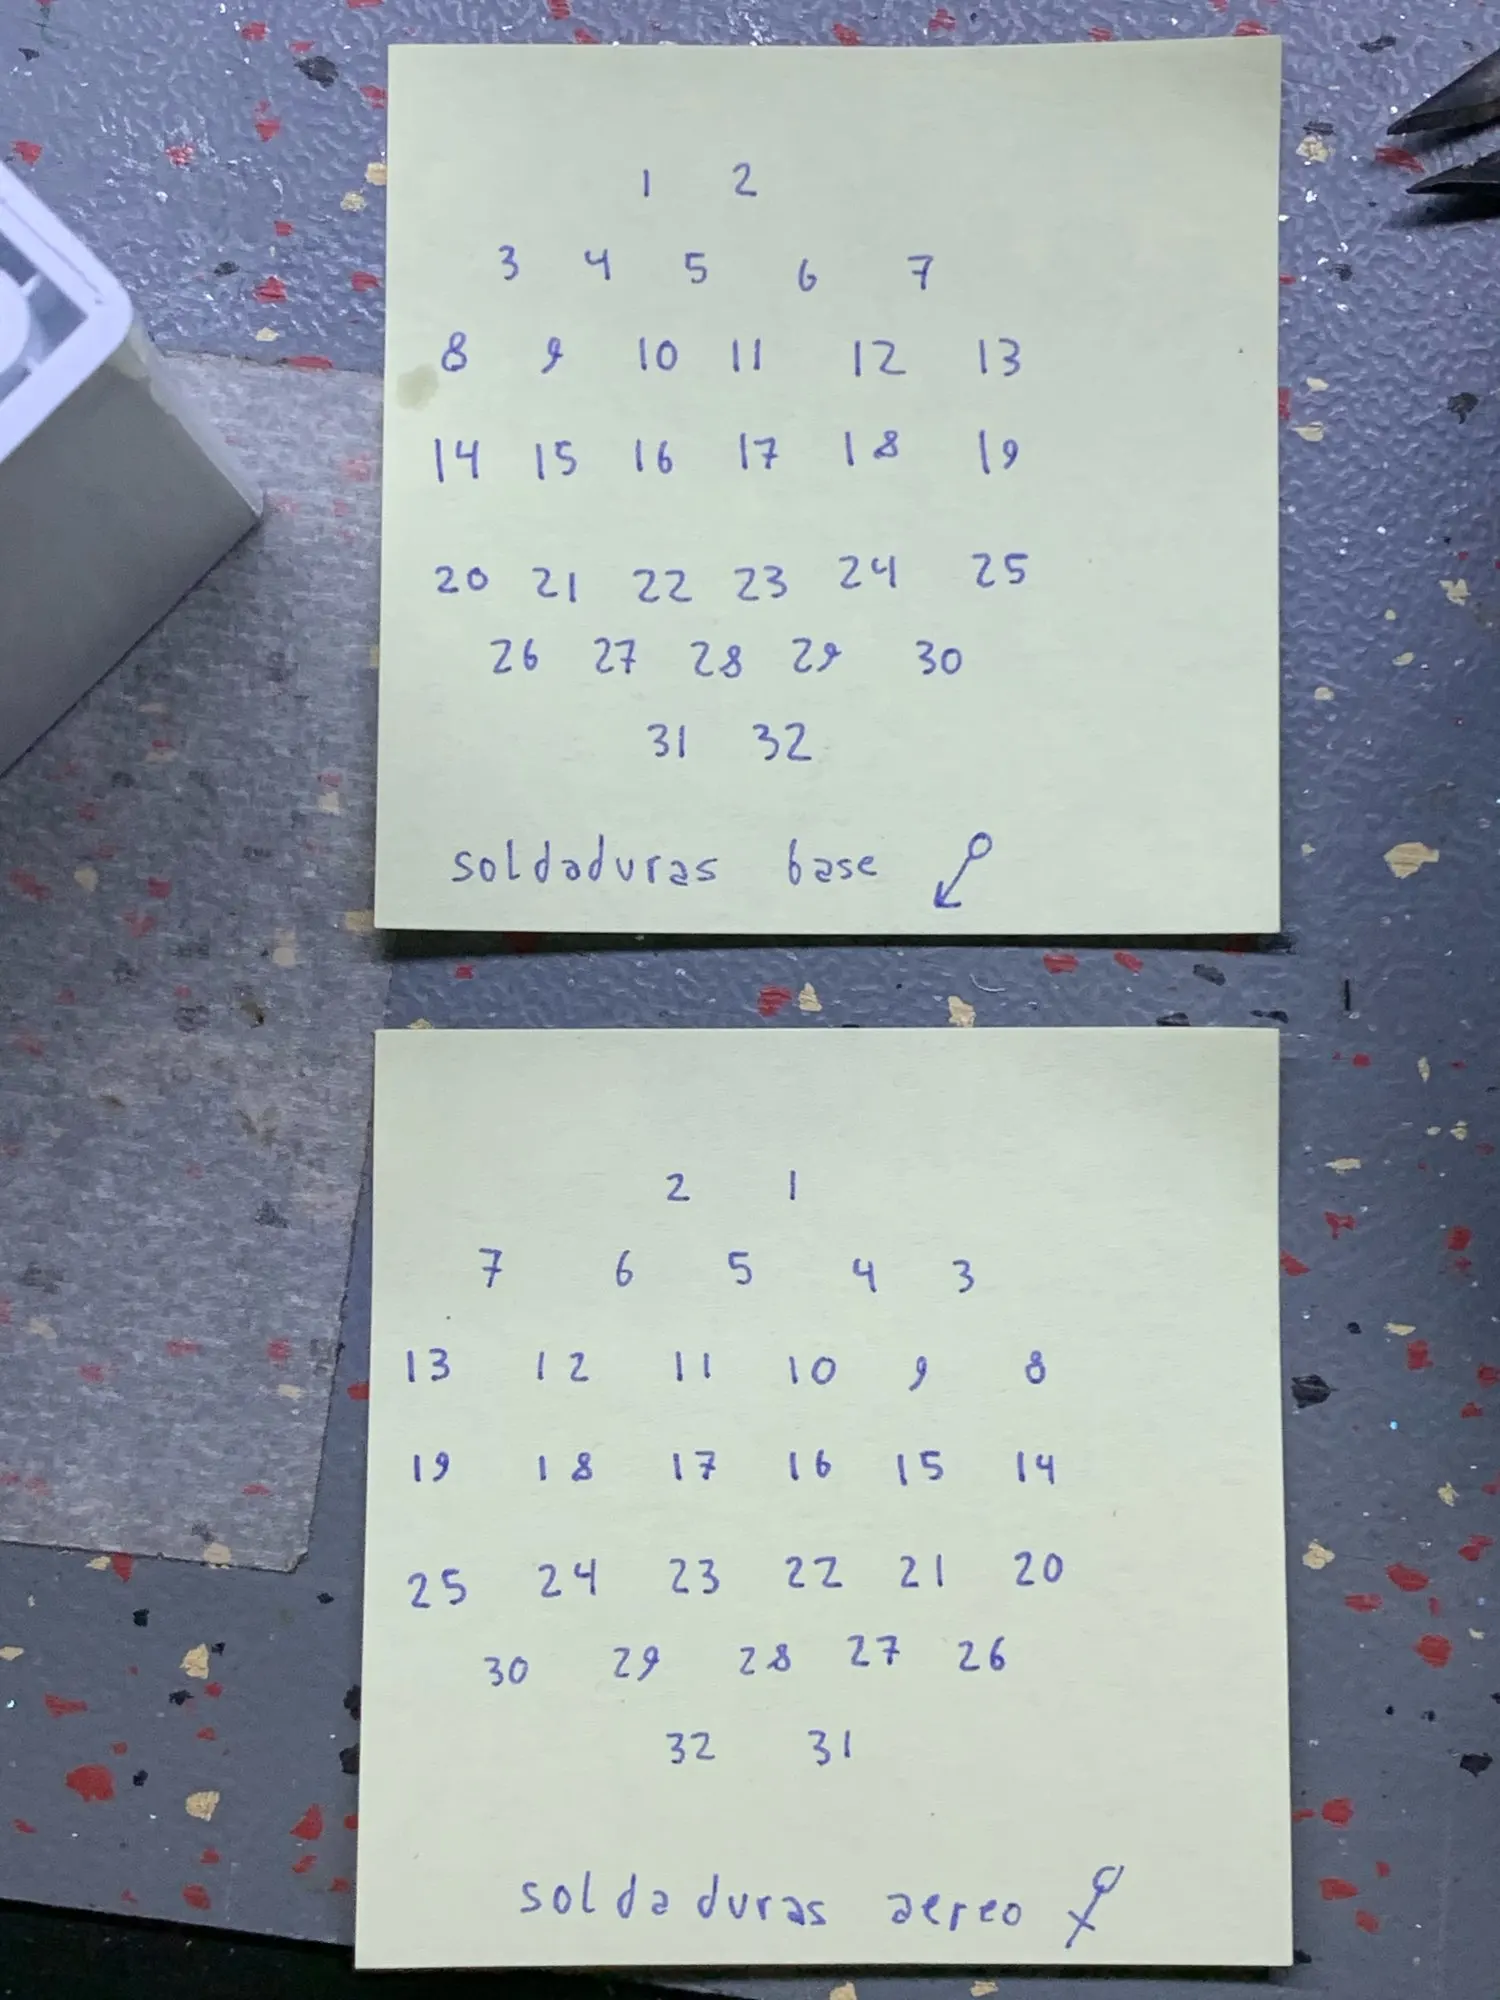 1 2
3 4 5 6 7
8 9 10 11 12 13
14 15 16 17 18 19
20 21 22 23 24 25
26 27 28 29 30
31 32
soldaduras base
2 1
7 6 5 4 3
13 12 11 10 9 8
19 18 17 16 15 14
25 24 23 22 21 20
30 29 28 27 26
32 31
soldaduras aereo